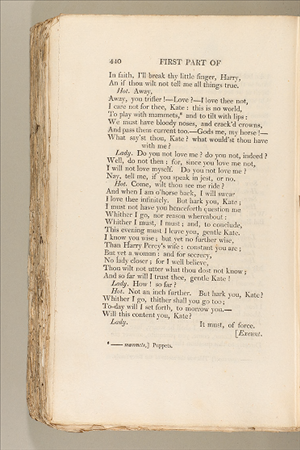 420 FIRST PART OF
In faith, I'll break thy little finger, Harry,
An if thou wilt not tell me all things true.
Hot. Away,
Away, you trifler!—Love?—I love thee not,
I care not for thee, Kate: this is no world,
To play with mammets,* and to tilt with lips:
We must have bloody noses, and crack'd crowns,
And pass them current too.—Gods me, my horse!—
What say'st thou, Kate? what would'st thou have
with me?
Lady. Do you not love me? do you not, indeed?
Well, do not then; for, since you love me not,
I will not love myself. Do you not love me?
Nay, tell me, if you speak in jest, or no.
Hot. Come, wilt thou see me ride?
And when I am o'horse back, I will swear
I love thee infinitely. But hark you, Kate;
I must not have you henceforth question me
Whither I go, nor reason whereabout:
Whither I must, I must; and, to conclude,
This evening must I leave you, gentle Kate.
I know you wise; but yet no further wise,
Than Harry Percy's wife: constant you are;
But yet a woman: and for secrecy,
No lady closer; for I well believe,
Thou wilt not utter what thou dost not know;
And so far will I trust thee, gentle Kate!
Lady. How! so far?
Hot. Not an inch further. But hark you, Kate?
Whither I go, thither shall you go too;
To-day will I set forth, to morrow you.—
Will this content you, Kate?
Lady. It must, of force.
[Exeunt.
* —— mammets,] Puppets.